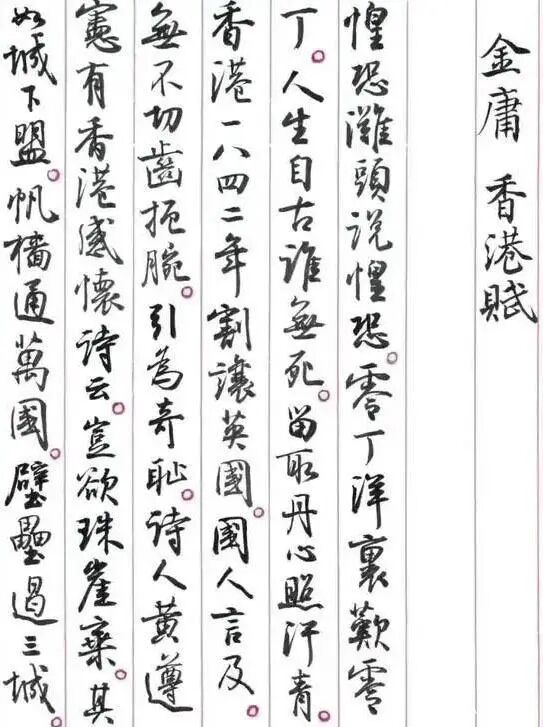 金庸 香港賦
惶恐灘頭说惶恐。零丁洋裏歎零
丁。人生自古誰無死。留取丹心照汗青。
香港一八四二年割讓英國。國人言及
無不切齒扼腕。引為奇恥。诗人黄遵
憲有香港感懷诗云。豈欲珠崖棄。其
如城下盟。帆檣通萬國。壁壘逼三城。